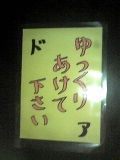 ゆっくり
あけて
下さい
ドア